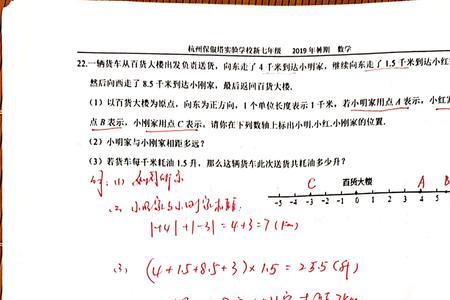 杭州保俶塔实验学校新七年级 2019年暑期 数学
22.一辆货车从百货大楼出发负责送货，向东走了 4 千米到达小明家，继续向东走了 1.5 千米到达小红
然后向西走了 8.5 千米到达小刚家，最后返回百货大楼.
（1）以百货大楼为原点，向东为正方向，1 个单位长度表示 1 千米，若小明家用点 A 表示，小红
点 B 表示，小刚家用点 C 表示，请你在下列数轴上标出小明.小红.小刚家的位置.
（2）小明家与小刚家相距多远？
（3）若货车每千米耗油 1.5 升，那么这辆货车此次送货共耗油多少升？
解：(1) 如图所示
C 百货大楼 A B
-5 -4 -3 -2 -1 0 1 2 3 4 5
(2) 小明家与小刚家相距：
|+4|+|-3|=4+3=7(km)
(3) (4+1.5+8.5+3)×1.5=25.5(升)